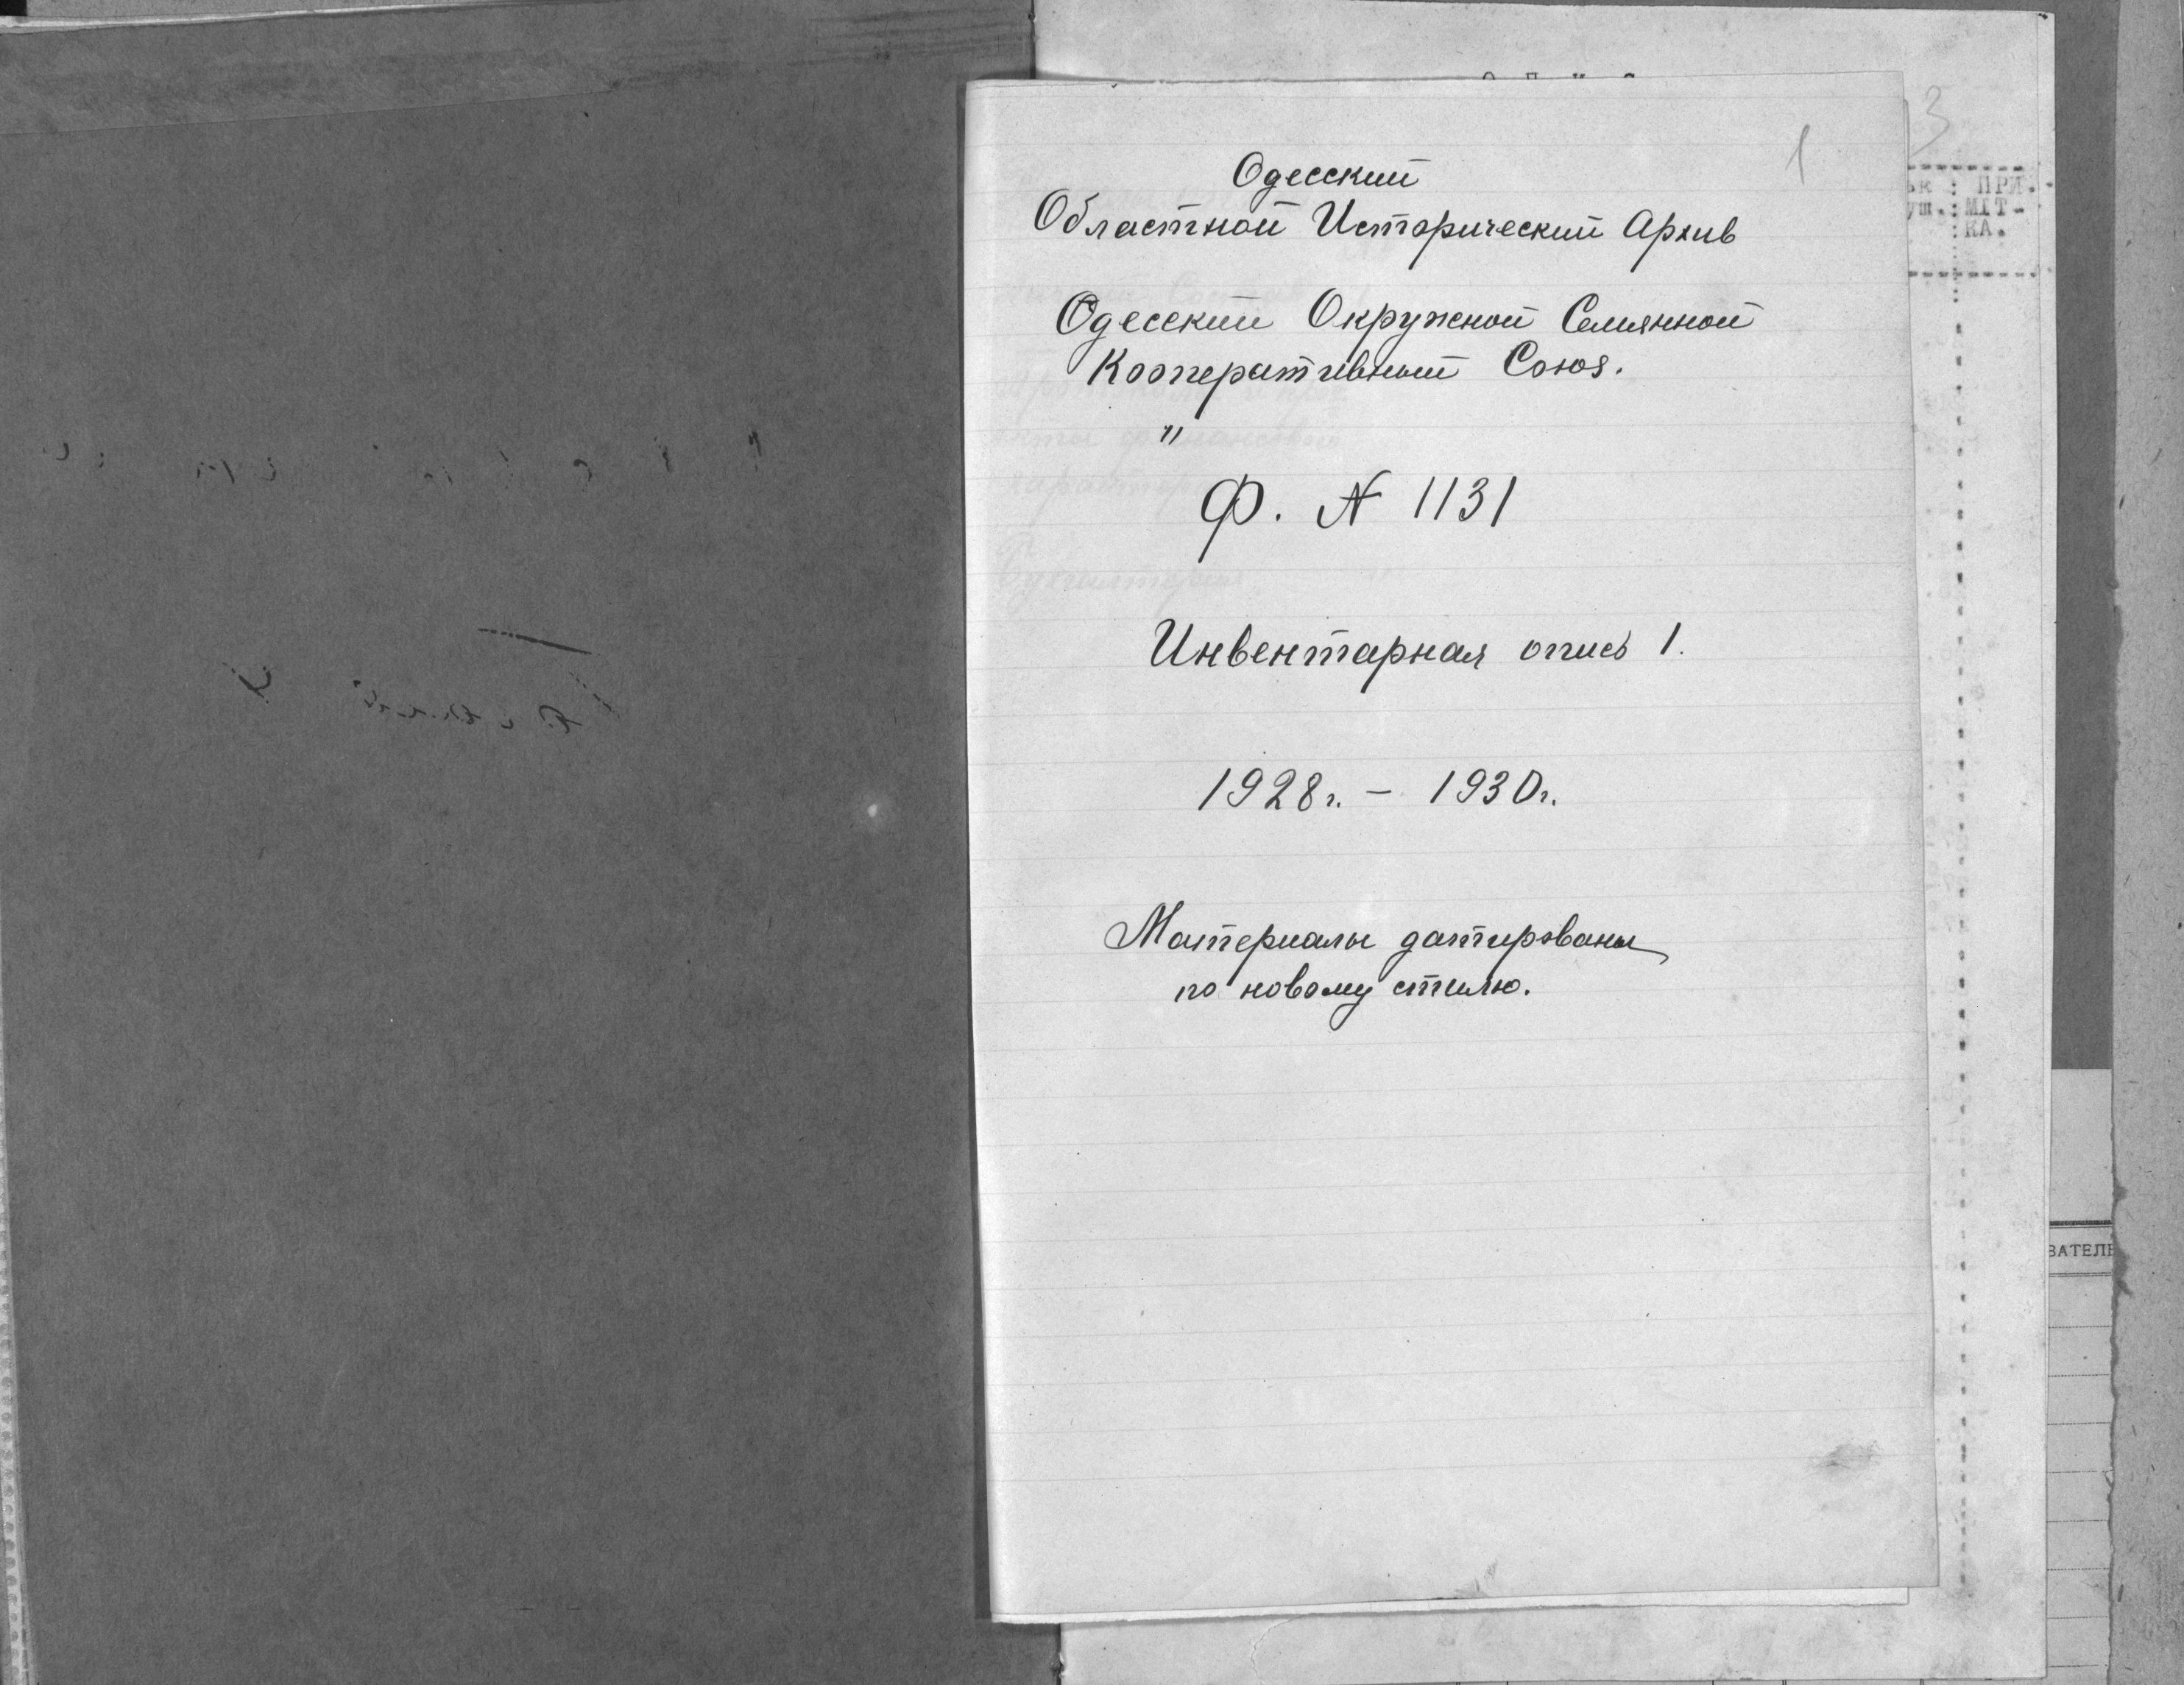 1
Одесский
Областной Исторический Архив
Одесский Окружной Семянной
Кооперативный Союз.
"
Ф. № 1131
Инвентарная опись 1.
1928г. – 1930г.
Материалы датированы
по новому стилю.
3
ПРИ-
МІТ-
КА.
ВАТЕЛЬ